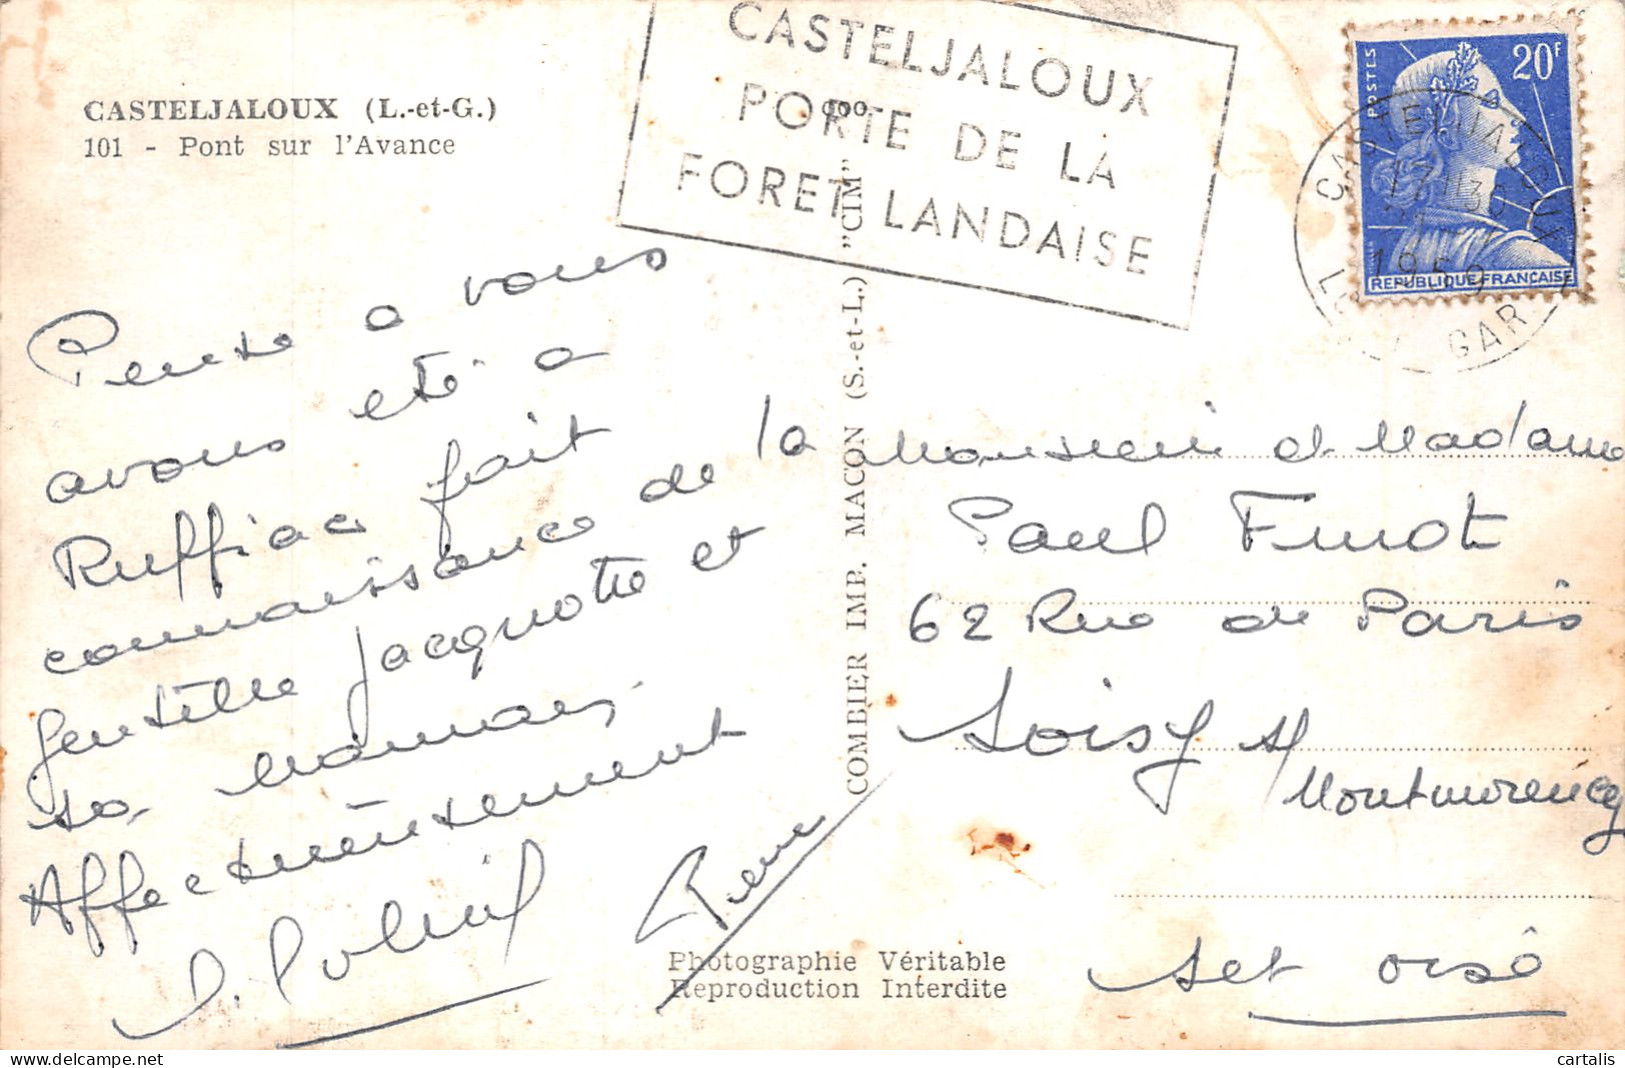 CASTELJALOUX (L.-et-G.)
101 - Pont sur l'Avance
CASTELJALOUX
PORTE DE LA
FORET LANDAISE
POSTES
20F
REPUBLIQUE FRANÇAISE
CASTELJALOUX
1959
GAR
Pense a vous
avons eté a
Ruffiac fait
connaissance de la
gentille Jacquotte et
sa maman,
Affectueusement
COMBIER IMP. MACON (S.-et-L.) "CIM"
Monsieur et Madame
Paul Finot
62 Rue de Paris
Soisy s/
Montmorency
Set oise
Photographie Véritable
Reproduction Interdite
cartalis